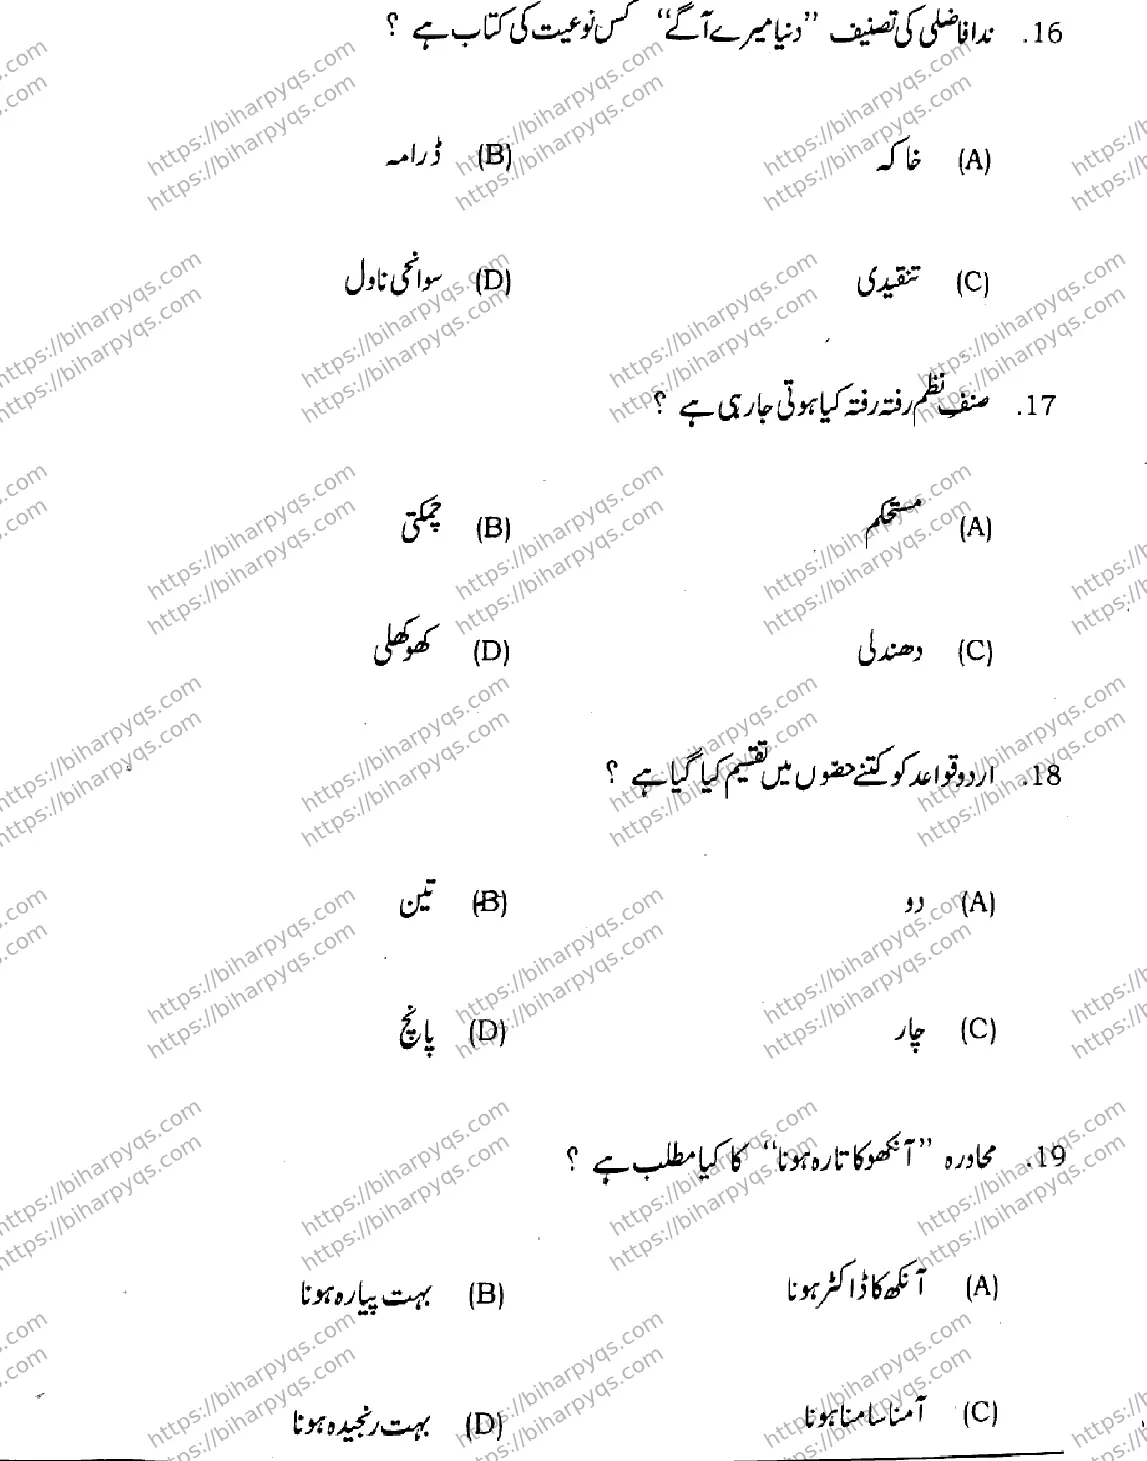 16. ندا فاضلی کی تصنیف ”دنیا میرے آگے“ کس نوعیت کی کتاب ہے ؟
(A) خاکہ (B) ڈرامہ
(C) تنقیدی (D) سوانحی ناول
17. صنف نظم رفتہ رفتہ کیا ہوتی جارہی ہے ؟
(A) مستحکم (B) چمکتی
(C) دھندلی (D) کھوکھلی
18. اردو قواعد کو کتنے حصّوں میں تقسیم کیا گیا ہے ؟
(A) دو (B) تین
(C) چار (D) پانچ
19. محاورہ ”آنکھ کا تارہ ہونا“ کا کیا مطلب ہے ؟
(A) آنکھ کا ڈاکٹر ہونا (B) بہت پیارہ ہونا
(C) آمنا سامنا ہونا (D) بہت رنجیدہ ہونا
https://biharpyqs.com